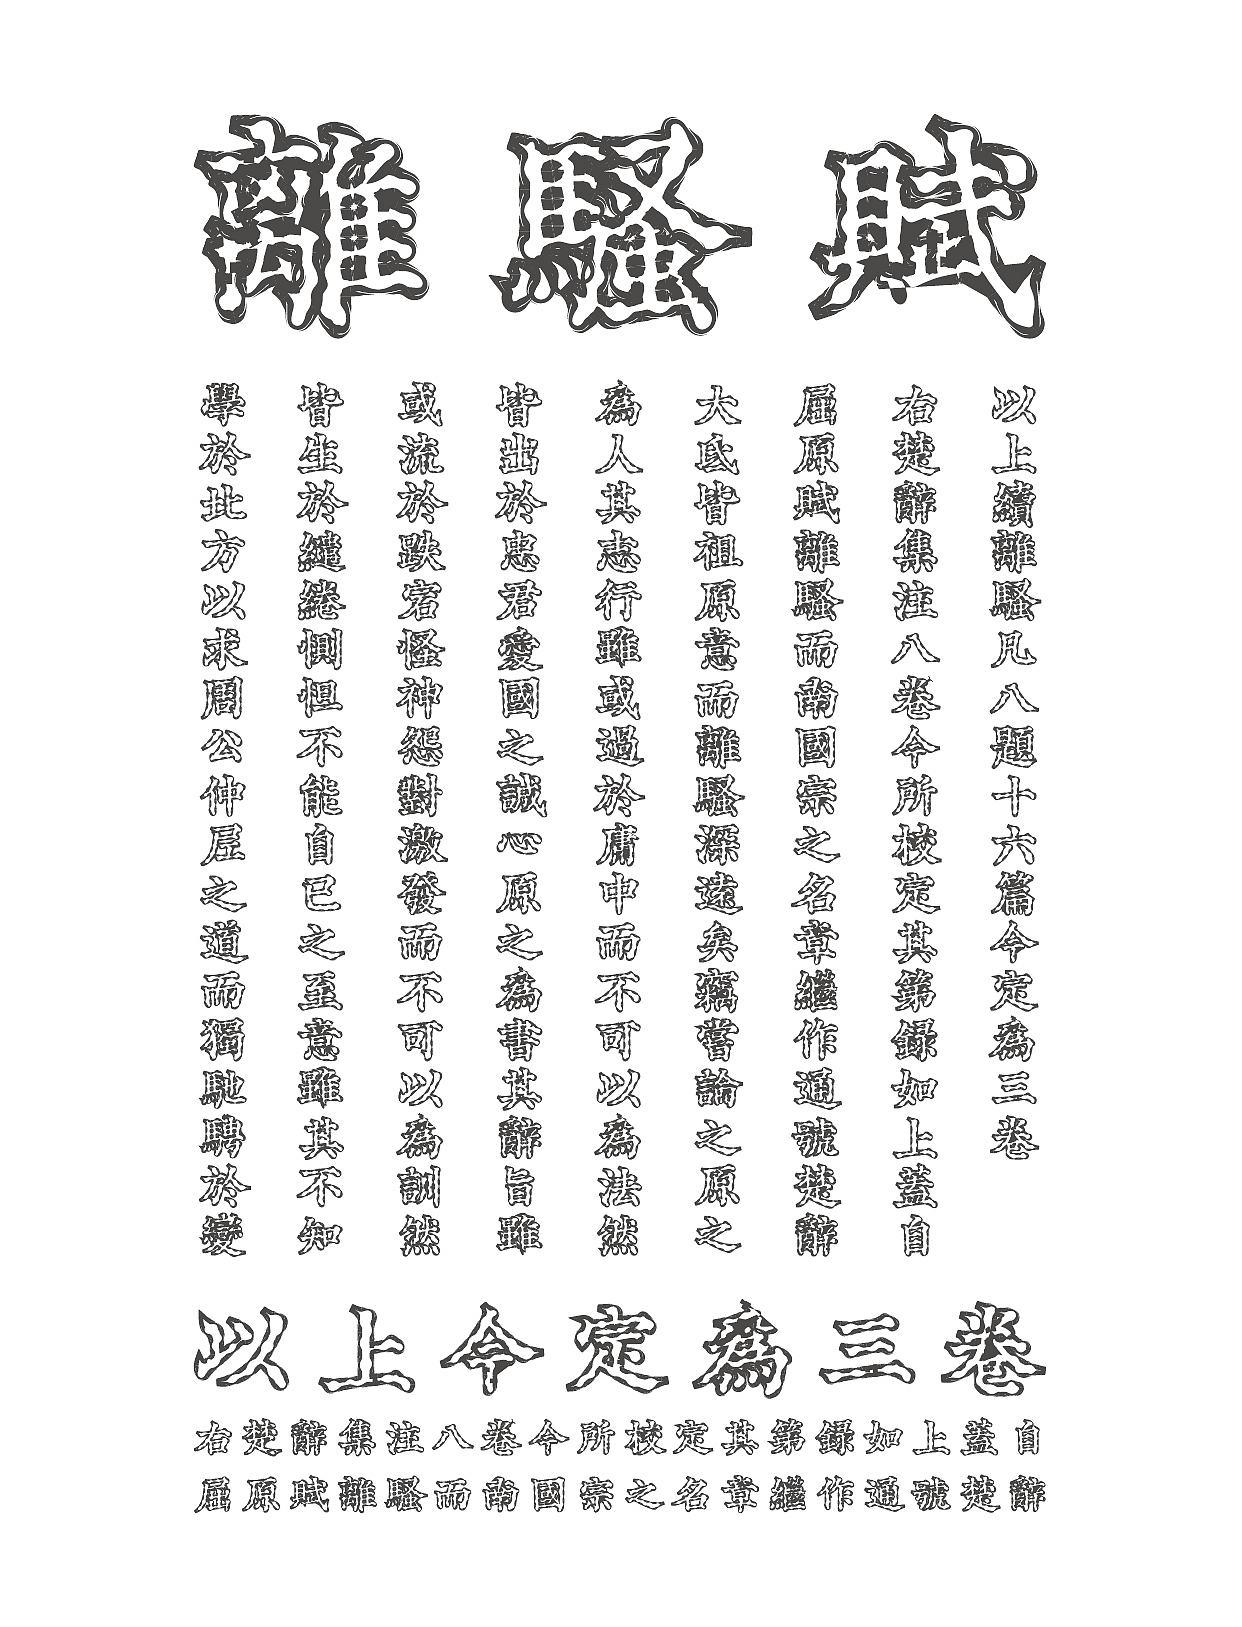 離騷賦
以上續離騷凡八題十六篇今定為三卷
右楚辭集注八卷今所校定其第錄如上蓋自
屈原賦離騷而南國宗之名章繼作通號楚辭
大氐皆祖原意而離騷深遠矣竊嘗論之原之
為人其志行雖或過於庸中而不可以為法然
皆出於忠君愛國之誠心原之為書其辭旨雖
或流於跌宕怪神怨懟激發而不可以為訓然
皆生於繾綣惻怛不能自已之至意雖其不知
學於北方以求周公仲尼之道而獨馳騁於變
以上今定為三卷
右楚辭集注八卷今所校定其第錄如上蓋自
屈原賦離騷而南國宗之名章繼作通號楚辭